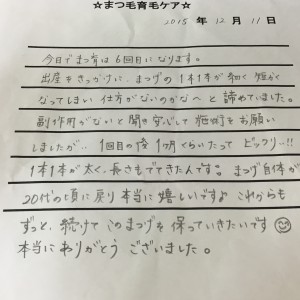 ☆まつ毛育毛ケア☆
2015 年 12 月 11 日
今日でまつ育は6回目になります。
出産をきっかけに、まつげの1本1本が細く短かく
なってしまい仕方がないのかな〜と諦めていました。
副作用がないと聞き安心して施術をお願い
しましたが、1回目の後1ヶ月くらいたって ビックリ!!
1本1本が太く、長さもでてきたんです。まつげ自体が
20代の頃に戻り本当に嬉しいですよ これからも
ずっと、続けて このまつげを 保っていきたいです
本当に ありがとう ございました。